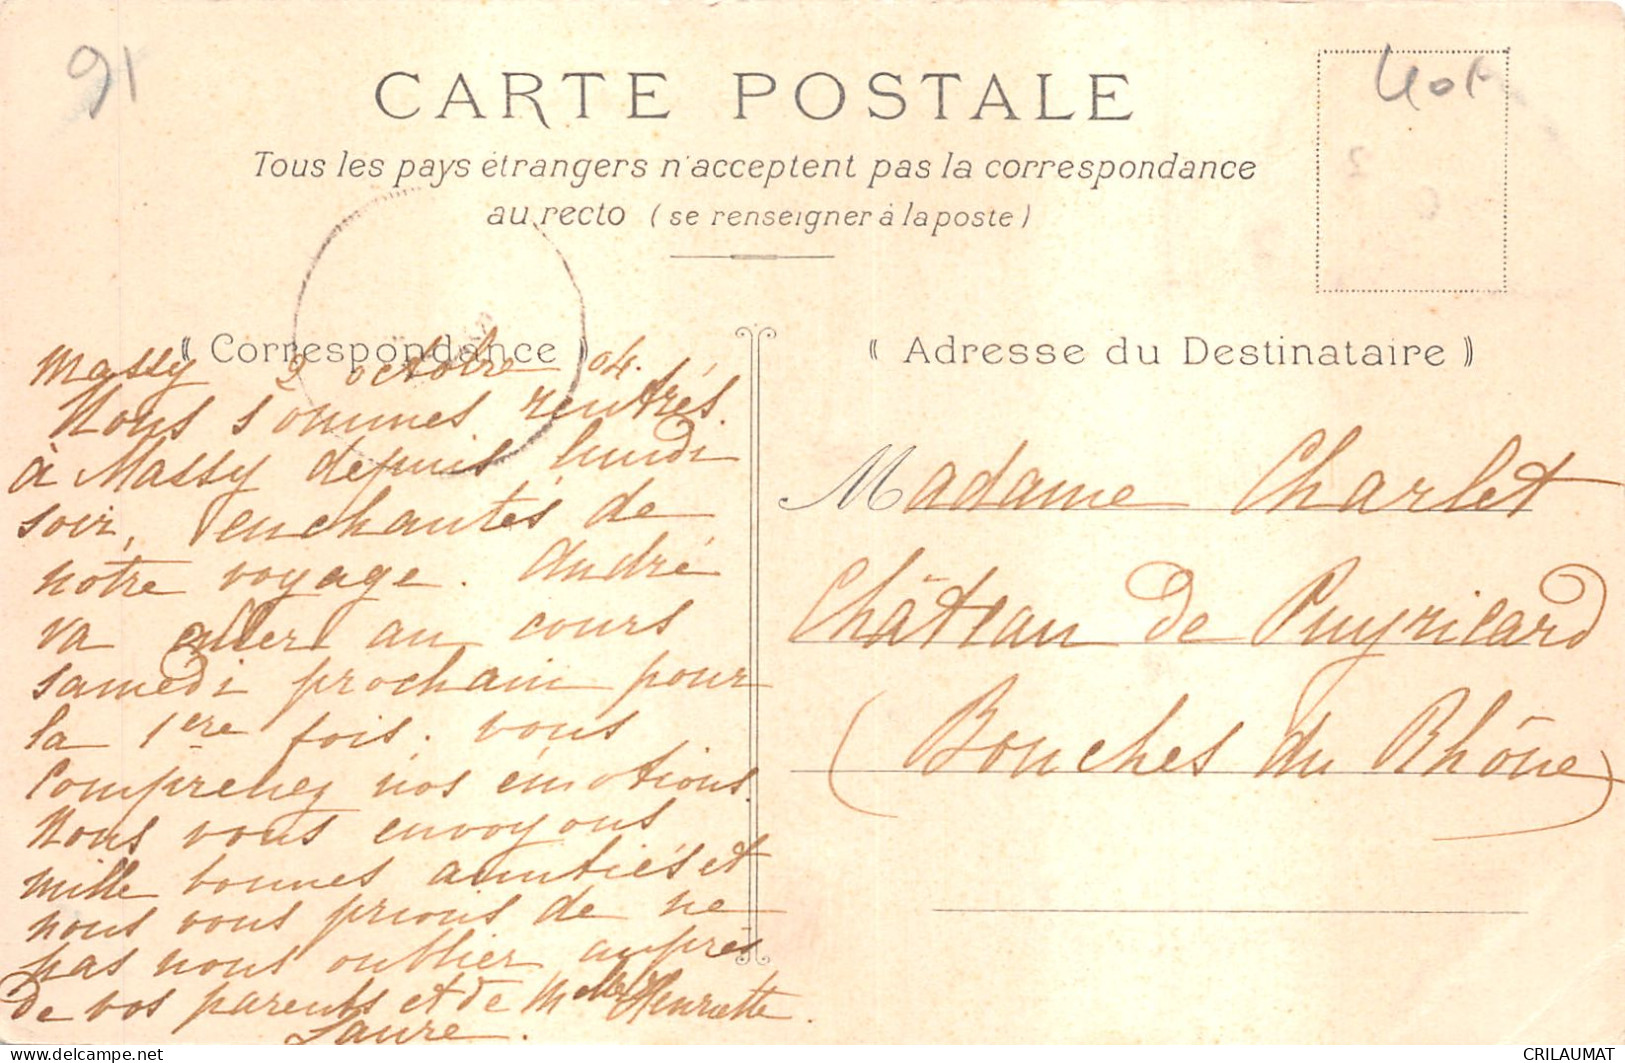 91
40F
CARTE POSTALE
Tous les pays étrangers n'acceptent pas la correspondance
au recto (se renseigner à la poste)
Correspondance
Massy 2 octobre 04.
Nous sommes rentrés
à Massy depuis lundi
soir, enchantés de
notre voyage. André
va entrer au cours
samedi prochain pour
la 1ère fois. Vous
comprenez nos émotions.
Nous vous envoyons
mille bonnes amitiés et
nous vous prions de ne
pas nous oublier auprès
de vos parents et de Melle Henriette.
Laure.
Adresse du Destinataire
Madame Charlet
Château de Puyricard
(Bouches du Rhône)
CRILAUMAT